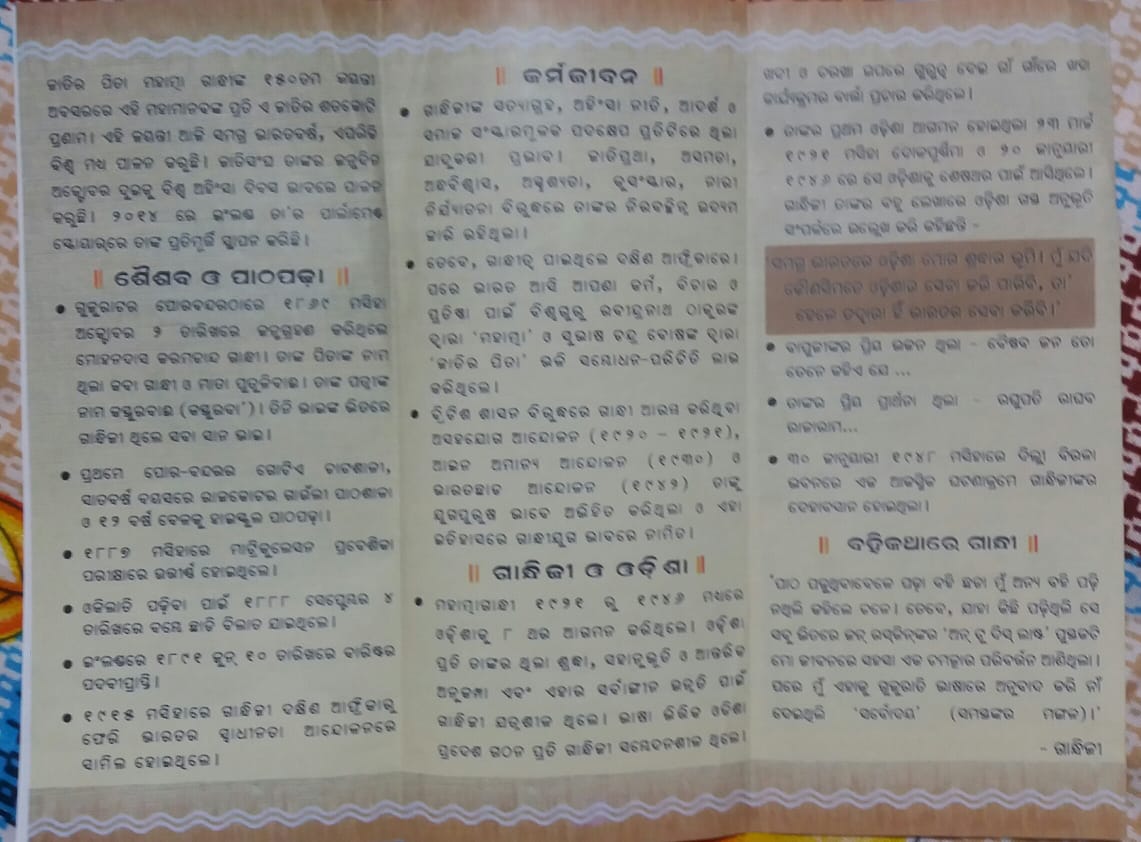 ଜାତିର ପିତା ମହାତ୍ମା ଗାନ୍ଧୀଙ୍କ ୧୫୦ତମ ଜୟନ୍ତୀ
ଅବସରରେ ଏହି ମହାମାନବଙ୍କ ପ୍ରତି ଏ ଜାତିର ଶତକୋଟି
ପ୍ରଣାମ। ଏହି ଜୟନ୍ତୀ ଆଜି ସମଗ୍ର ଭାରତବର୍ଷ, ଏପରିକି
ବିଶ୍ୱ ମଧ୍ୟ ପାଳନ କରୁଛି। ଜାତିସଂଘ ତାଙ୍କର ଜନ୍ମଦିନ
ଅକ୍ଟୋବର ଦୁଇକୁ ବିଶ୍ୱ ଅହିଂସା ଦିବସ ଭାବରେ ପାଳନ
କରୁଛି। ୨୦୧୪ ରେ ଇଂଲଣ୍ଡ ତା'ର ପାର୍ଲାମେଣ୍ଟ
ସ୍କୋୟାର୍‌ରେ ତାଙ୍କ ପ୍ରତିମୂର୍ତ୍ତି ସ୍ଥାପନ କରିଛି।
॥ ଶୈଶବ ଓ ପାଠପଢ଼ା ॥
● ଗୁଜୁରାଟର ପୋରବନ୍ଦରଠାରେ ୧୮୬୯ ମସିହା
ଅକ୍ଟୋବର ୨ ତାରିଖରେ ଜନ୍ମଗ୍ରହଣ କରିଥିଲେ
ମୋହନଦାସ କରମଚାନ୍ଦ ଗାନ୍ଧୀ। ତାଙ୍କ ପିତାଙ୍କ ନାମ
ଥିଲା କବା ଗାନ୍ଧୀ ଓ ମାତା ପୁତୁଳିବାଈ। ତାଙ୍କ ପତ୍ନୀଙ୍କ
ନାମ କସ୍ତୁରବାଈ (କସ୍ତୁରବା')। ତିନି ଭାଇଙ୍କ ଭିତରେ
ଗାନ୍ଧିଜୀ ଥିଲେ ସବା ସାନ ଭାଇ।
● ପ୍ରଥମେ ପୋର-ବନ୍ଦରର ଗୋଟିଏ ଚାଟଶାଳୀ,
ସାତବର୍ଷ ବୟସରେ ରାଜକୋଟର ଗାଉଁଲୀ ପାଠଶାଳା
ଓ ୧୨ ବର୍ଷ ବେଳକୁ ହାଇସ୍କୁଲ ପାଠପଢ଼ା।
● ୧୮୮୭ ମସିହାରେ ମାଟ୍ରିକୁଲେସନ ପ୍ରବେଶିକା
ପରୀକ୍ଷାରେ ଉତ୍ତୀର୍ଣ୍ଣ ହୋଇଥିଲେ।
● ଓକିଲାତି ପଢ଼ିବା ପାଇଁ ୧୮୮୮ ସେପ୍ଟେମ୍ବର ୪
ତାରିଖରେ ବମ୍ବେ ଛାଡି ବିଲାତ ଯାଇଥିଲେ।
● ଇଂଲଣ୍ଡରେ ୧୮୯୧ ଜୁନ୍ ୧୦ ତାରିଖରେ ବାରିଷ୍ଟର
ପଦବୀପ୍ରାପ୍ତି।
● ୧୯୧୫ ମସିହାରେ ଗାନ୍ଧିଜୀ ଦକ୍ଷିଣ ଆଫ୍ରିକାରୁ
ଫେରି ଭାରତର ସ୍ୱାଧୀନତା ଆନ୍ଦୋଳନରେ
ସାମିଲ ହୋଇଥିଲେ।
॥ କର୍ମଜୀବନ ॥
● ଗାନ୍ଧିଜୀଙ୍କ ସତ୍ୟାଗ୍ରହ, ଅହିଂସା ନୀତି, ଆଦର୍ଶ ଓ
ସମାଜ ସଂସ୍କାରମୂଳକ ପଦକ୍ଷେପ ପ୍ରତିଟିରେ ଥିଲା
ଯାଦୁକରୀ ପ୍ରଭାବ। ଜାତିପ୍ରଥା, ଅସମତା,
ଅନ୍ଧବିଶ୍ୱାସ, ଅସ୍ପୃଶ୍ୟତା, କୁସଂସ୍କାର, ନାରୀ
ନିର୍ଯ୍ୟାତନା ବିରୁଦ୍ଧରେ ତାଙ୍କର ନିରବଚ୍ଛିନ୍ନ ଉଦ୍ୟମ
ଜାରି ରହିଥିଲା।
● ତେବେ, ଗାନ୍ଧୀତ୍ୱ ପାଇଥିଲେ ଦକ୍ଷିଣ ଆଫ୍ରିକାରେ।
ପରେ ଭାରତ ଆସି ଆପଣା କର୍ମ, ବିଚାର ଓ
ପ୍ରତିଷ୍ଠା ପାଇଁ ବିଶ୍ୱଗୁରୁ ରବୀନ୍ଦ୍ରନାଥ ଠାକୁରଙ୍କ
ଦ୍ୱାରା 'ମହାତ୍ମା' ଓ ସୁଭାଷ ଚନ୍ଦ୍ର ବୋଷଙ୍କ ଦ୍ୱାରା
'ଜାତିର ପିତା' ଭଳି ସମ୍ବୋଧନ-ପରିଚିତି ଲାଭ
କରିଥିଲେ।
● ବ୍ରିଟିଶ ଶାସନ ବିରୁଦ୍ଧରେ ଗାନ୍ଧୀ ଆରମ୍ଭ କରିଥିବା
ଅସହଯୋଗ ଆନ୍ଦୋଳନ (୧୯୨୦ – ୧୯୨୧),
ଆଇନ ଅମାନ୍ୟ ଆନ୍ଦୋଳନ (୧୯୩୦) ଓ
ଭାରତଛାଡ ଆନ୍ଦୋଳନ (୧୯୪୨) ତାଙ୍କୁ
ଯୁଗପୁରୁଷ ଭାବେ ଅଭିହିତ କରିଥିଲା ଓ ଏହା
ଇତିହାସରେ ଗାନ୍ଧୀଯୁଗ ଭାବରେ ନାମିତ।
॥ ଗାନ୍ଧିଜୀ ଓ ଓଡ଼ିଶା ॥
● ମହାତ୍ମାଗାନ୍ଧୀ ୧୯୨୧ ରୁ ୧୯୪୬ ମଧ୍ୟରେ
ଓଡ଼ିଶାକୁ ୮ ଥର ଆଗମନ କରିଥିଲେ। ଓଡ଼ିଶା
ପ୍ରତି ତାଙ୍କର ଥିଲା ଶ୍ରଦ୍ଧା, ସହାନୁଭୂତି ଓ ଆନ୍ତରିକ
ଅନୁକମ୍ପା ଏବଂ ଏହାର ସର୍ବାଙ୍ଗୀନ ଉନ୍ନତି ପାଇଁ
ଗାନ୍ଧିଜୀ ଯତ୍ନଶୀଳ ଥିଲେ। ଭାଷା ଭିତ୍ତିକ ଓଡିଶା
ପ୍ରଦେଶ ଗଠନ ପ୍ରତି ଗାନ୍ଧିଜୀ ସମ୍ବେଦନଶୀଳ ଥିଲେ।
ଖଦୀ ଓ ଚରଖା ଉପରେ ଗୁରୁତ୍ୱ ଦେଇ ଗାଁ ଗାଁରେ ଖଦୀ
କାର୍ଯ୍ୟକ୍ରମର ବାର୍ତ୍ତା ପ୍ରଚାର କରିଥିଲେ।
● ତାଙ୍କର ପ୍ରଥମ ଓଡ଼ିଶା ଆଗମନ ହୋଇଥିଲା ୨୩ ମାର୍ଚ୍ଚ
୧୯୨୧ ମସିହା ଦୋଳପୂର୍ଣ୍ଣିମା ଓ ୨୦ ଜାନୁଯାରୀ
୧୯୪୬ ରେ ସେ ଓଡ଼ିଶାକୁ ଶେଷଥର ପାଇଁ ଆସିଥିଲେ।
ଗାନ୍ଧିଜୀ ତାଙ୍କର ବହୁ ଲେଖାରେ ଓଡ଼ିଶା ଗସ୍ତ ଅନୁଭୂତି
ସଂପର୍କରେ ଉଲ୍ଲେଖ କରି କହିଛନ୍ତି -
'ସମଗ୍ର ଭାରତରେ ଓଡ଼ିଶା ମୋର ଶ୍ରଦ୍ଧାର ଭୂମି। ମୁଁ ଯଦି
କୌଣସିମତେ ଓଡ଼ିଶାର ସେବା କରି ପାରିବି, ତା'
ହେଲେ ତଦ୍ୱାରା ହିଁ ଭାରତର ସେବା କରିବି।'
● ବାପୁଜୀଙ୍କର ପ୍ରିୟ ଭଜନ ଥିଲା - ବୈଷ୍ଣବ ଜନ ତୋ
ତେନେ କହିଏ ଯେ ...
● ତାଙ୍କର ପ୍ରିୟ ପ୍ରାର୍ଥନା ଥିଲା - ରଘୁପତି ରାଘବ
ରାଜାରାମ...
● ୩୦ ଜାନୁୟାରୀ ୧୯୪୮ ମସିହାରେ ଦିଲ୍ଲୀ ବିରଲା
ଭବନରେ ଏକ ଆକସ୍ମିକ ଘଟଣାକ୍ରମେ ଗାନ୍ଧିଜୀଙ୍କର
ଦେହାବସାନ ହୋଇଥିଲା।
॥ ବହିକଥାରେ ଗାନ୍ଧୀ ॥
'ପାଠ ପଢୁଥିବାବେଳେ ପଢ଼ା ବହି ଛଡା ମୁଁ ଅନ୍ୟ ବହି ପଢ଼ି
ନଥିଲି କହିଲେ ଚଳେ। ତେବେ, ଯାହା କିଛି ପଢ଼ିଥିଲି ସେ
ସବୁ ଭିତରେ ଜନ୍ ରସ୍କିନ୍‌ଙ୍କର 'ଅନ୍ ଟୁ ଦିସ୍ ଲାଷ୍ଟ' ପୁସ୍ତକଟି
ମୋ ଜୀବନରେ ସହସା ଏକ ଚମତ୍କାର ପରିବର୍ତ୍ତନ ଆଣିଥିଲା।
ପରେ ମୁଁ ଏହାକୁ ଗୁଜୁରାତି ଭାଷାରେ ଅନୁବାଦ କରି ନାଁ
ଦେଇଥିଲି 'ସର୍ବୋଦୟ' (ସମସ୍ତଙ୍କର ମଙ୍ଗଳ)।'
- ଗାନ୍ଧିଜୀ